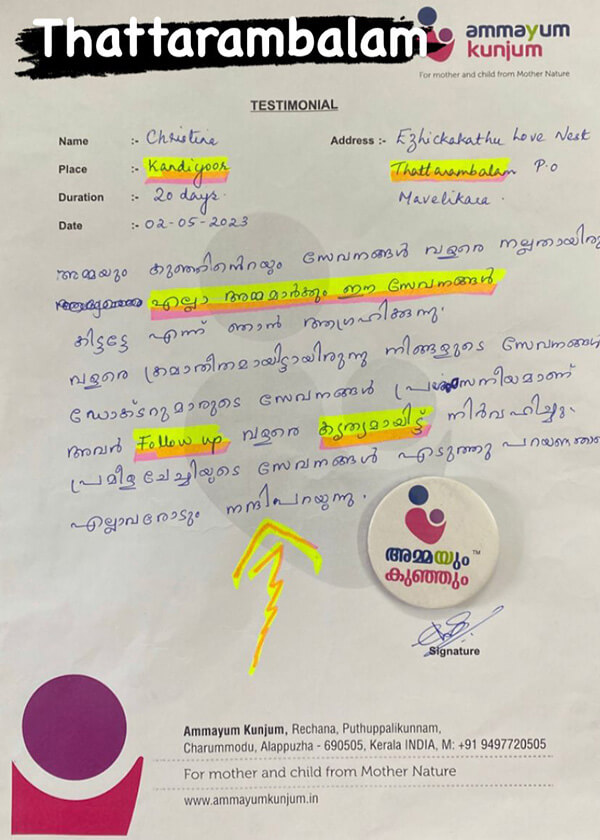 Thattarambalam
ammayum
kunjum
For mother and child from Mother Nature
TESTIMONIAL
Name :- Christine
Address :- Ezhickakathu Love Nest
Place :- Kandiyoor
Thattarambalam P.O
Duration :- 20 days.
Mavelikara.
Date :- 02-05-2023
അമ്മയും കുഞ്ഞിൻെറയും സേവനങ്ങൾ വളരെ നല്ലതായിരു
എല്ലാ അമ്മമാർക്കും ഈ സേവനങ്ങൾ
കിട്ടട്ടേ എന്ന് ഞാൻ ആഗ്രഹിക്കുന്നു.
വളരെ ക്രമാതീതമായിട്ടായിരുന്നു നിങ്ങളുടെ സേവനങ്ങൾ
ഡോക്ടറുമാരുടെ സേവനങ്ങൾ പ്രശംസനീയമാണ്
അവർ Follow up വളരെ കൃത്യമായിട്ട് നിർവഹിച്ചു.
പ്രമീള ചേച്ചിയുടെ സേവനങ്ങൾ എടുത്തു
എല്ലാവരോടും നന്ദിപറയുന്നു.
അമ്മയും TM
കുഞ്ഞും
Signature
Ammayum Kunjum, Rechana, Puthuppalikunnam,
Charummodu, Alappuzha - 690505, Kerala INDIA, M: +91 9497720505
For mother and child from Mother Nature
www.ammayumkunjum.in